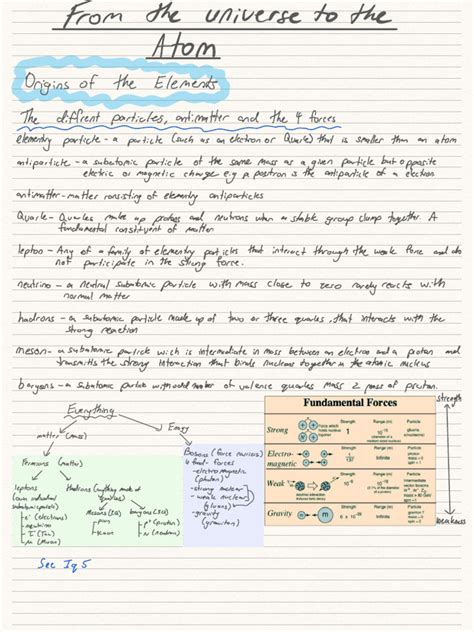 From the universe to the
Atom
Origins of the Elements
The diffrent particles, antimatter and the 4 forces
elementry particle - a particle (such as an electron or Quark) that is smaller than an atom
antiparticle - a subatomic particle of the same mass as a given particle but opposite
electric or magnetic charge e.g a positron is the antiparticle of a electron
antimatter - matter consisting of elementry antiparticles
Quark - Quarks make up protons and neutrons when a stable group clump together. A
fundamental constituent of matter
lepton - Any of a family of elementry particles that interact through the weak force and do
not participate in the strong force.
neutrino - a neutral subatomic particle with mass close to zero rarely reacts with
normal matter
hadrons - a subatomic particle made up of two or three quarks, that interacts with the
strong reaction
meson - a subatomic particle wich is intermediate in mass between an electron and a proton and
transmitts the strong interaction that binds nucleons together in the atomic nucleus
baryons - a subatomic particle with odd number of valence quarks mass ≥ mass of proton.
Everything
matter (mass)
Energy
Fermions (matter)
Leptons
(own individual
subatomic particles)
- e⁻ (electrons)
- neutrino
- τ (Tau)
Hadrons (anything made of
quarks)
Mesons
Pion
Kaon
baryons
p⁺ (proton)
N (neutron)
Bosons (force carriers)
4 fund- forces
- electromagnetic
(photon)
- strong nuclear
- weak nuclear
(gluons)
- gravity
(graviton)
Fundamental Forces
Strong
Force which
holds nucleus
together
Strength
1
Range (m)
Particle
Electro-
magnetic
Strength
Range (m)
Infinite
Particle
photon
mass = 0
spin = 1
Weak
Strength
Range (m)
Particle
Intermediate
vector
bosons
spin = 1
Gravity
m
M
Strength
6 x 10⁻³⁹
Range (m)
Infinite
Particle
graviton ?
mass = 0
spin = 2
strength
weakness
See Iq 5